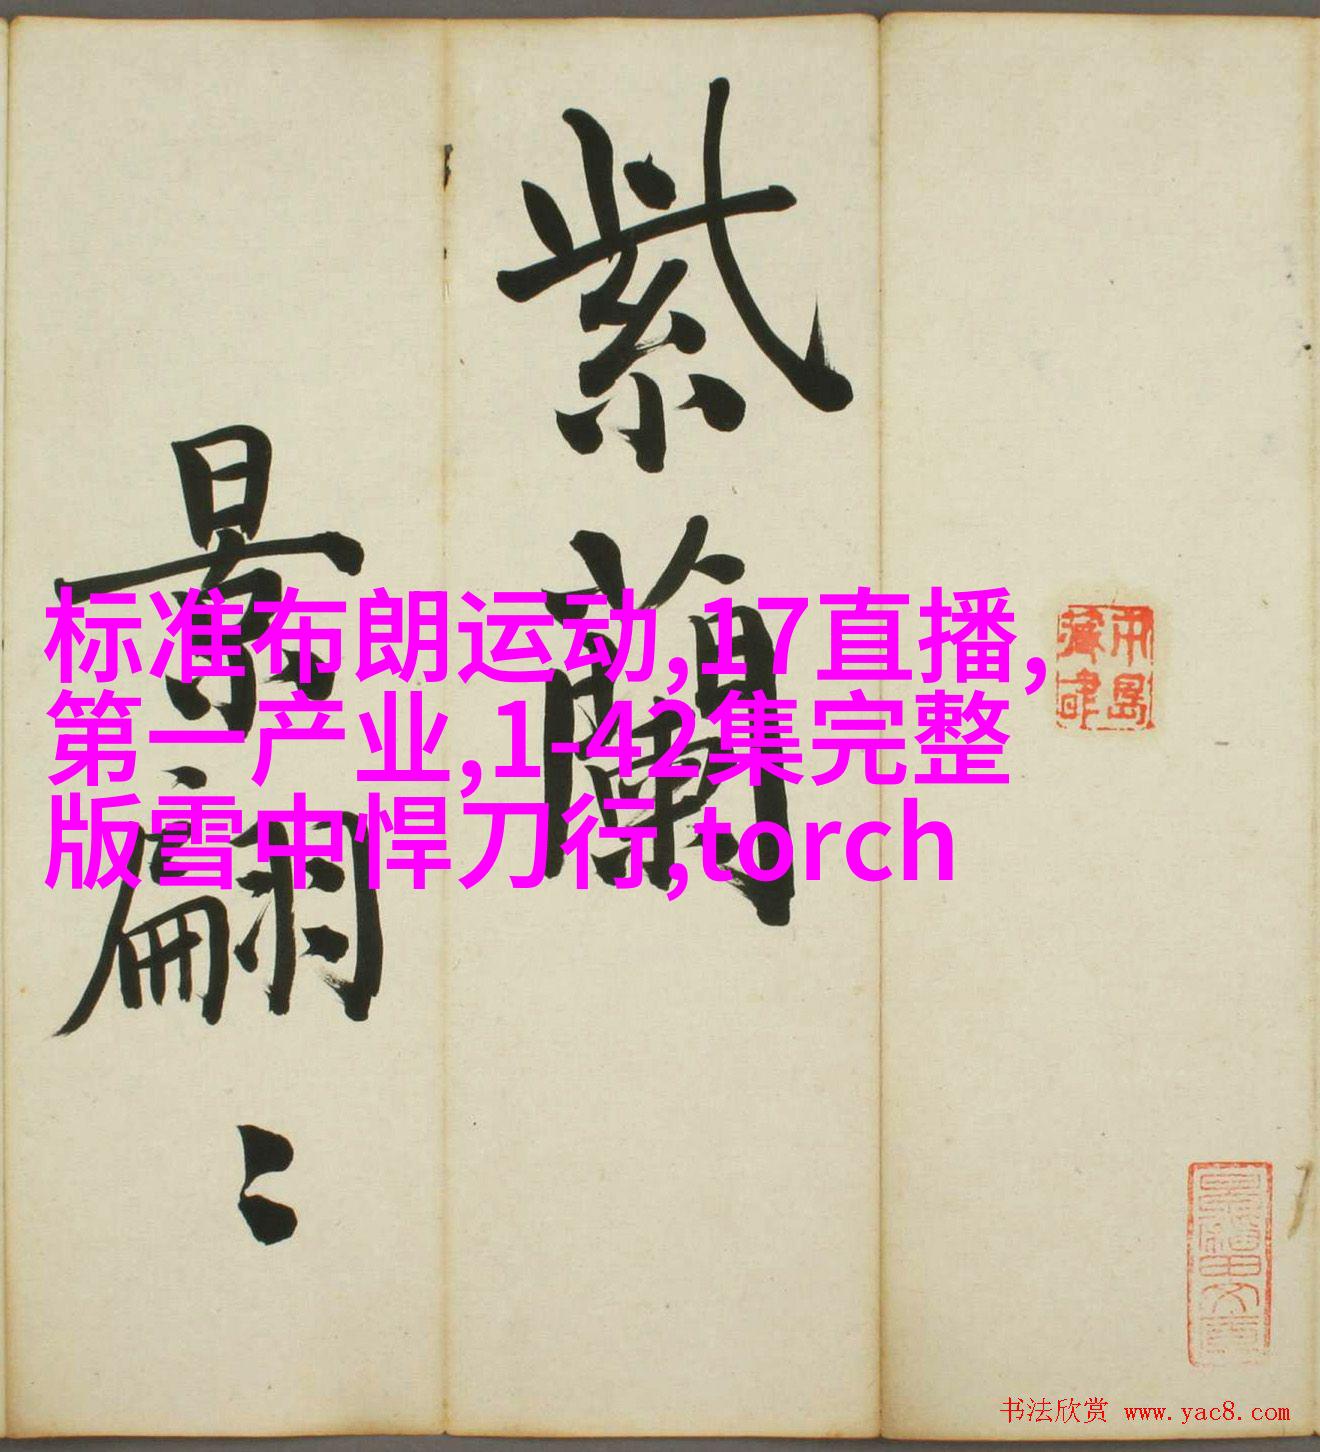 紫蘭
景翩〻
标准布朗运动,17直播,
第一产业,1-42集完整
版雪中悍刀行,torch
书法欣赏 www.yac8.com